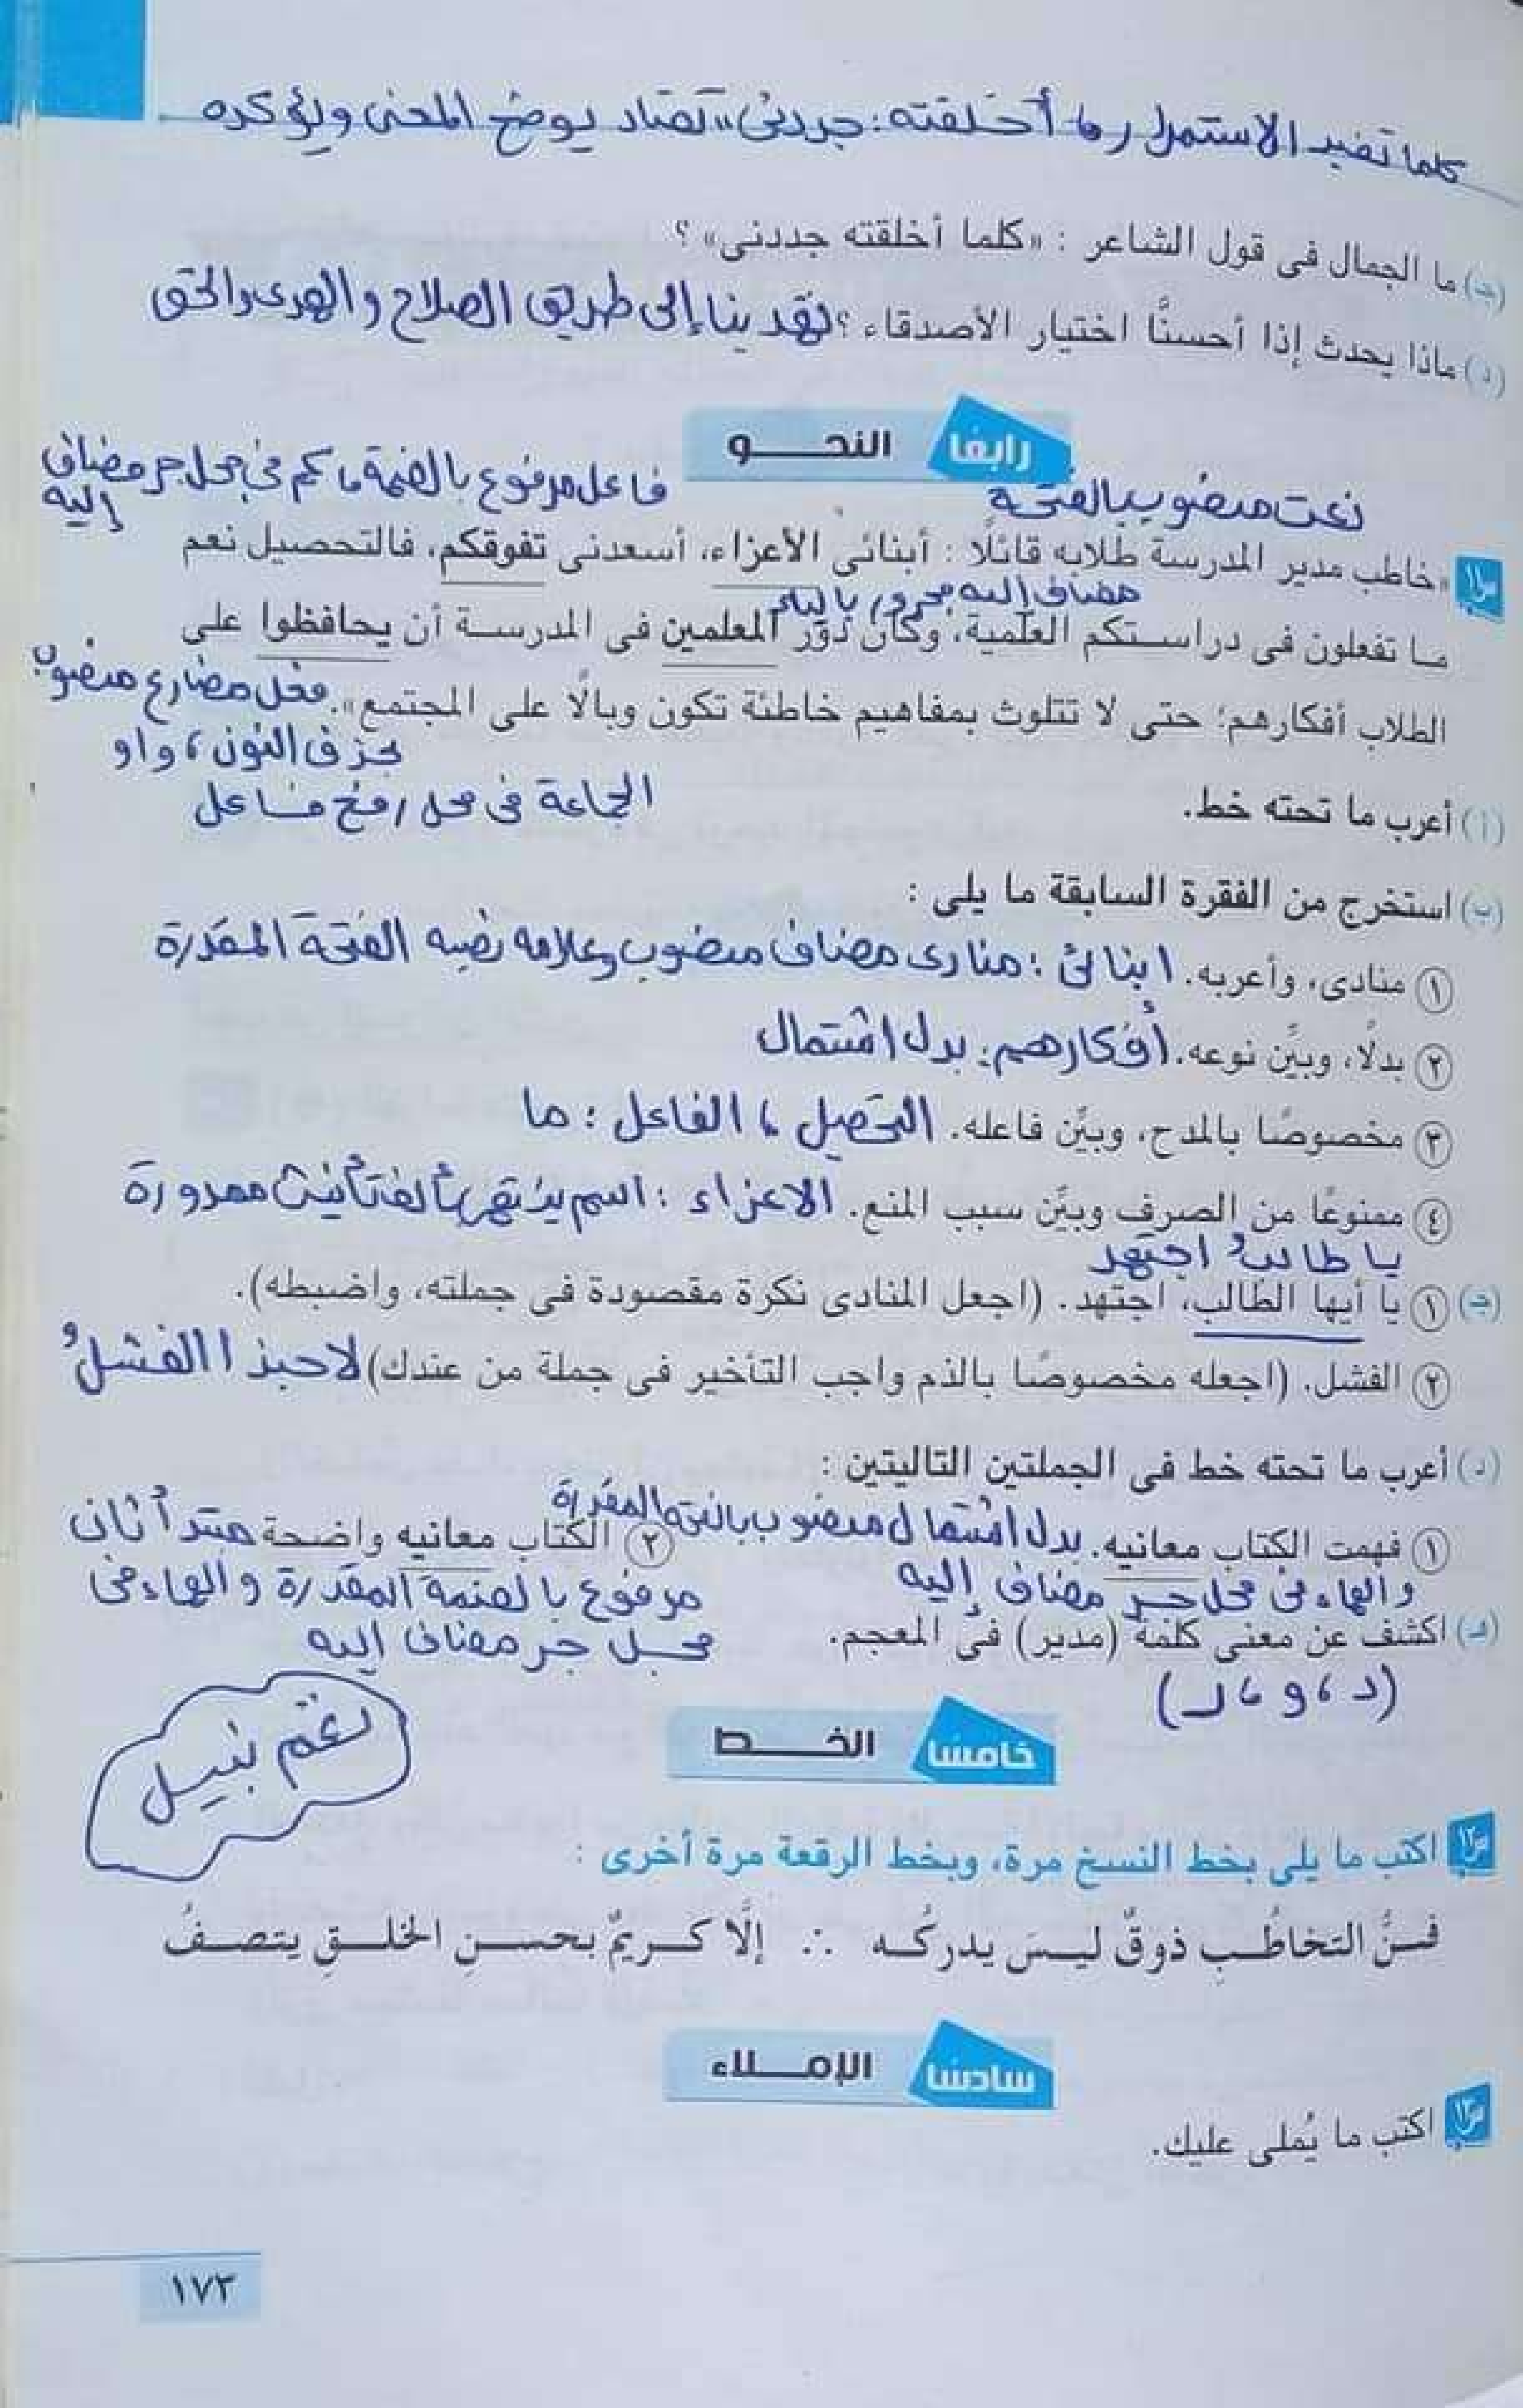 كلما تفيد الاستمرار وما أخلقته: جددنى، تضاد يوضح المعنى ويؤكده
(جـ) ما الجمال فى قول الشاعر : «كلما أخلقته جددنى» ؟
(د) ماذا يحدث إذا أحسنَّا اختيار الأصدقاء ؟ تهدينا إلى طريق الصلاح والهدى والحق
رابعًا النحـــو
نعت منصوب بالفتحة
فاعل مرفوع بالضمة، كم فى محل جر مضاف إليه
س١١ «خاطب مدير المدرسة طلابه قائلًا : أبنائى الأعزاء، أسعدنى تفوقكم، فالتحصيل نعم
مضاف إليه مجرور بالياء
ما تفعلون فى دراستكم العلمية، وكان دور المعلمين فى المدرسة أن يحافظوا على
الطلاب أفكارهم؛ حتى لا تتلوث بمفاهيم خاطئة تكون وبالًا على المجتمع». فعل مضارع منصوب
بحذف النون، واو
الجماعة فى محل رفع فاعل
(أ) أعرب ما تحته خط.
(ب) استخرج من الفقرة السابقة ما يلى :
١ منادى، وأعربه. ابنائى : منادى مضاف منصوب وعلامه نصبه الفتحة المقدرة
٢ بدلًا، وبيِّن نوعه. أفكارهم: بدل اشتمال
٣ مخصوصًا بالمدح، وبيِّن فاعله. التحصيل، الفاعل : ما
٤ ممنوعًا من الصرف وبيِّن سبب المنع. الاعزاء : اسم ينتهى بألف تأنيث ممدودة
يا طالبُ اجتهد
(جـ) ١ يا أيها الطالب، اجتهد. (اجعل المنادى نكرة مقصودة فى جملته، واضبطه).
٢ الفشل. (اجعله مخصوصًا بالذم واجب التأخير فى جملة من عندك) لاحبذا الفشلُ
(د) أعرب ما تحته خط فى الجملتين التاليتين :
١ فهمت الكتاب معانيه. بدل اشتمال منصوب بالفتحه المقدرة
٢ الكتاب معانيه واضحة مبتدأ ثان
والهاء فى محل جر مضاف إليه
مرفوع بالضمة المقدرة والهاء فى
محل جر مضاف إليه
(هـ) اكشف عن معنى كلمة (مدير) فى المعجم.
(د، و، ر)
خامسًا الخـــط
نغم نبيل
س١٢ اكتب ما يلى بخط النسخ مرة، وبخط الرقعة مرة أخرى :
فـنُّ التخاطُـبِ ذوقٌ ليـسَ يدركُـه ∴ إلَّا كـريمٌ بحسـنِ الخلـقِ يتصـفُ
سادسًا الإمـــلاء
س١٣ اكتب ما يُملى عليك.
١٧٣